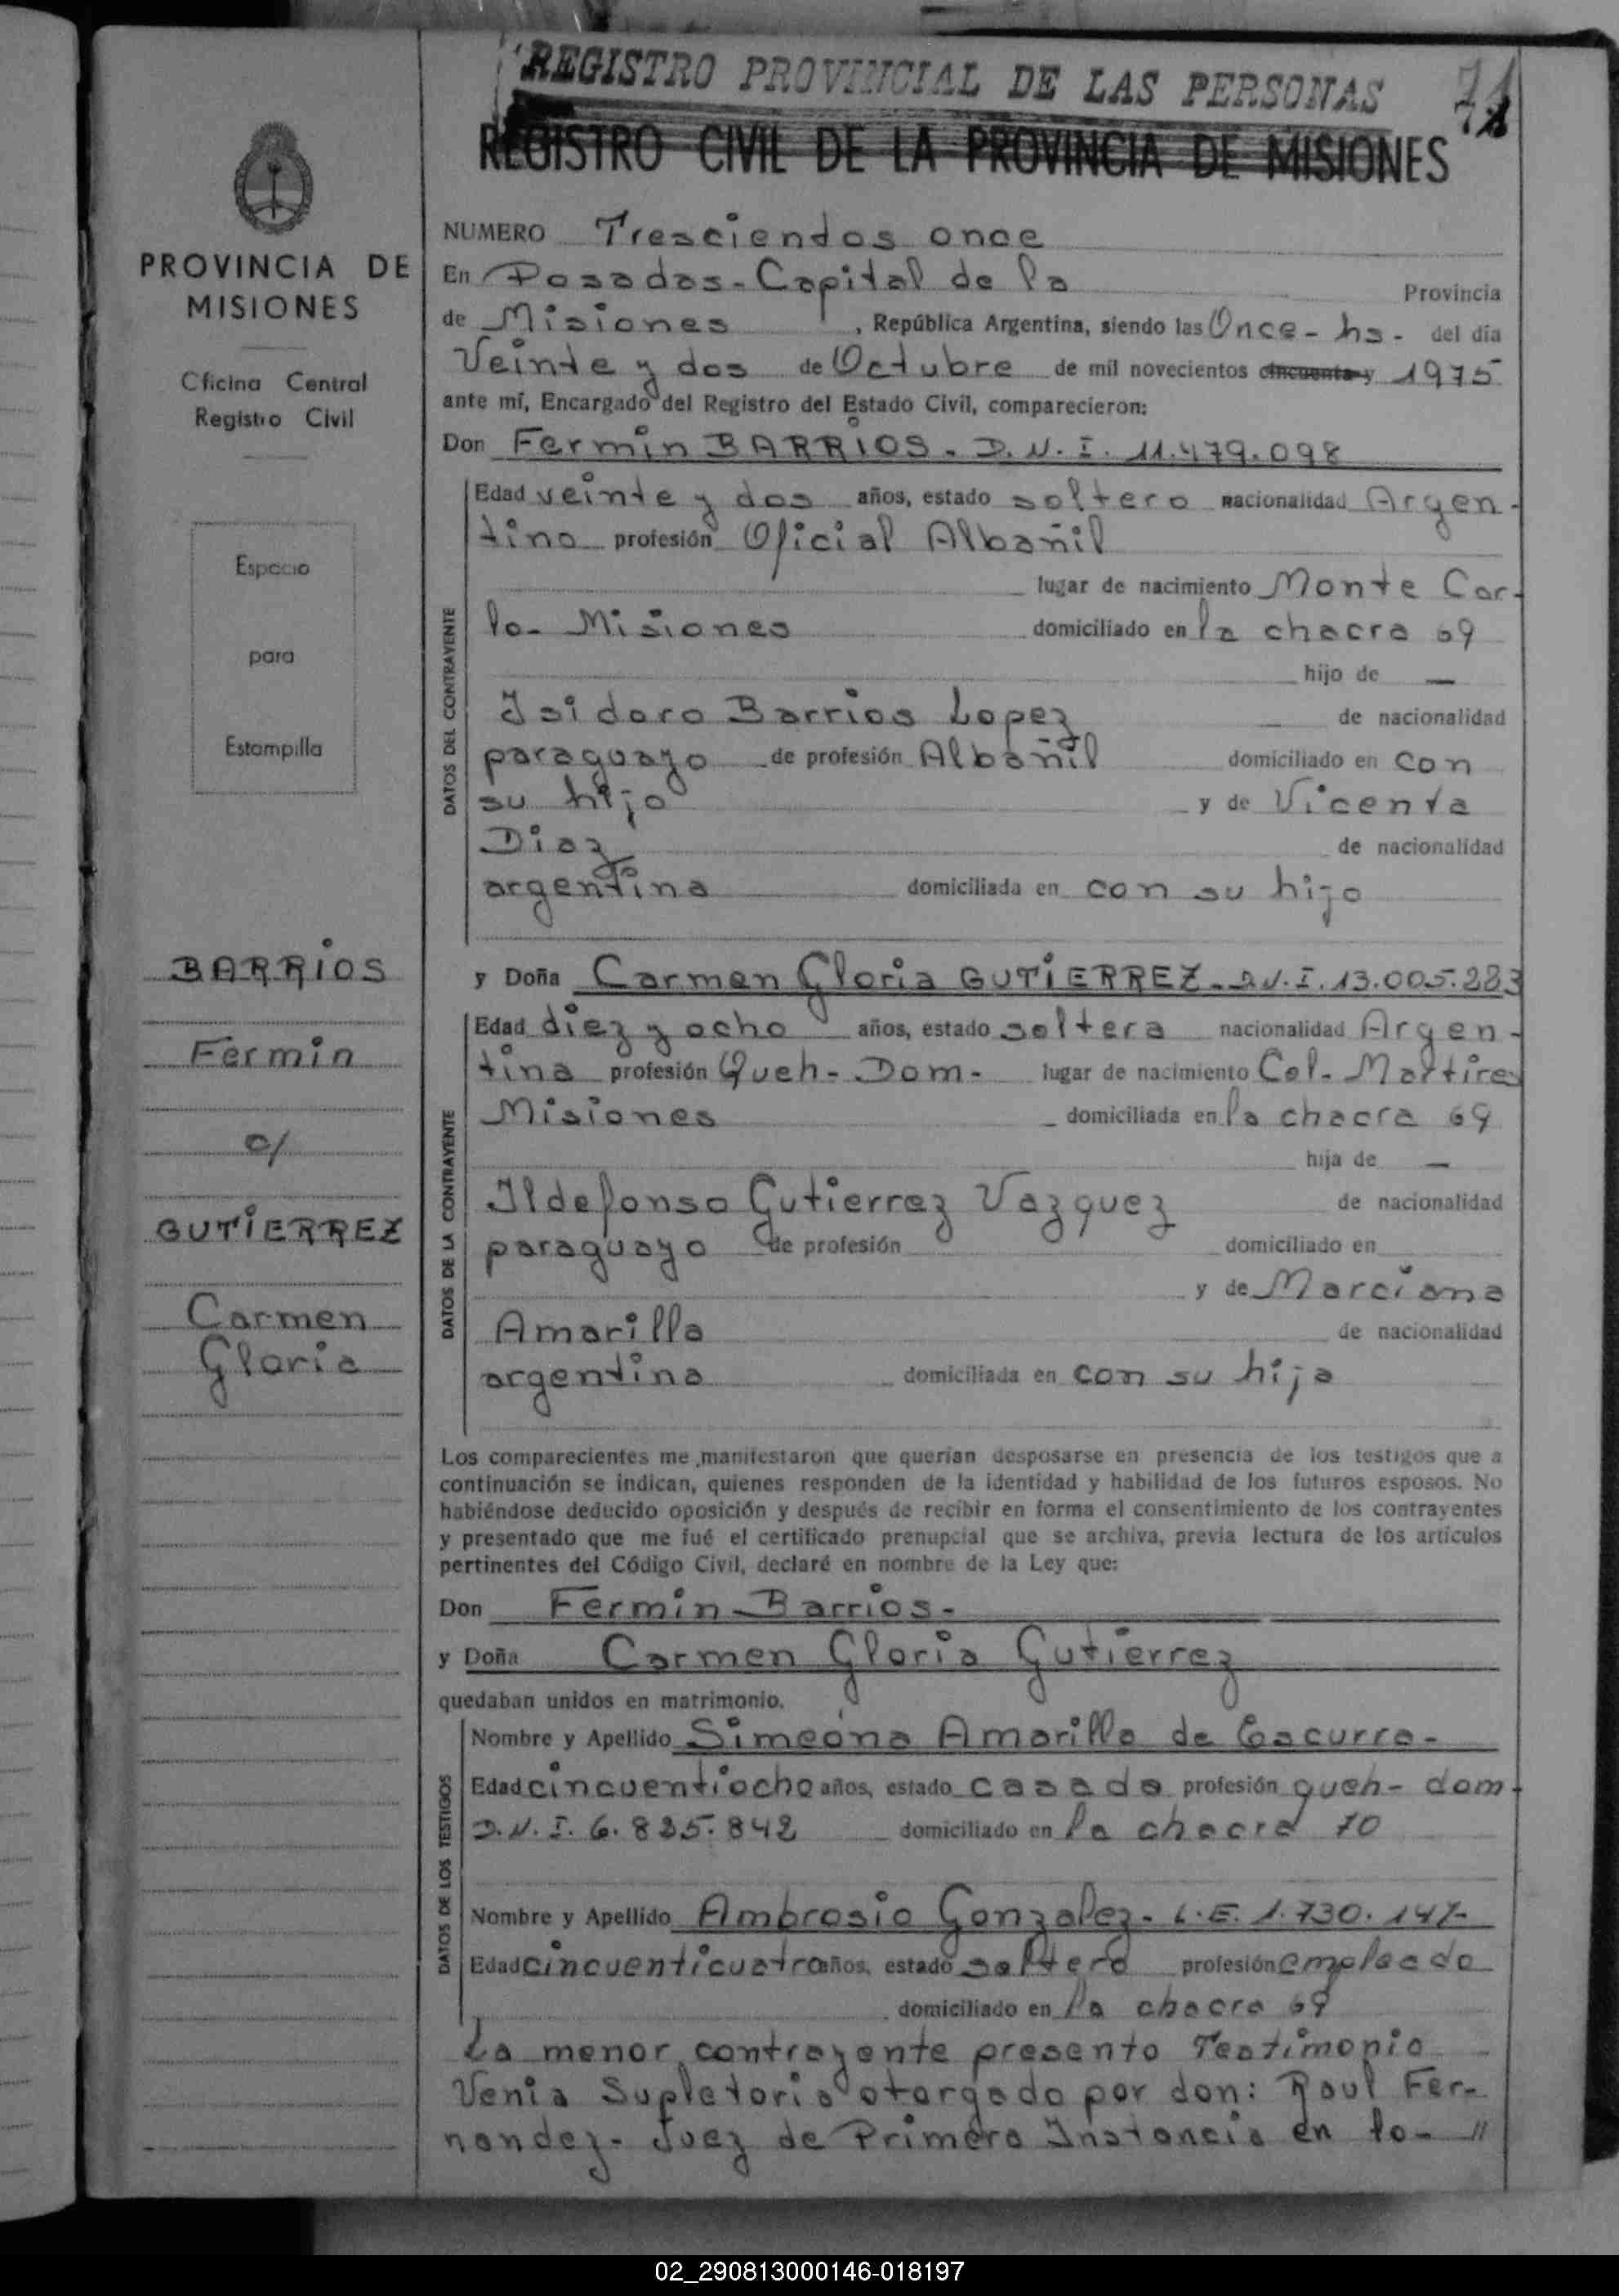 REGISTRO PROVINCIAL DE LAS PERSONAS
71
REGISTRO CIVIL DE LA PROVINCIA DE MISIONES
PROVINCIA DE
MISIONES
Oficina Central
Registro Civil
Espacio
para
Estampilla
BARRIOS
Fermin
c/
GUTIERREZ
Carmen
Gloria
NUMERO Tresciendos once
En Posadas - Capital de la Provincia
de Misiones, República Argentina, siendo las Once - hs - del día
Veinte y dos de Octubre de mil novecientos cincuenta y 1975
ante mí, Encargado del Registro del Estado Civil, comparecieron:
Don Fermin BARRIOS - D.N.I. 11.479.098
DATOS DEL CONTRAYENTE
Edad veinte y dos años, estado soltero nacionalidad Argen-
tino profesión Oficial Albañil
lugar de nacimiento Monte Car-
lo - Misiones domiciliado en la chacra 69
hijo de —
Isidoro Barrios Lopez de nacionalidad
paraguayo de profesión Albañil domiciliado en con
su hijo y de Vicenta
Diaz de nacionalidad
argentina domiciliada en con su hijo
y Doña Carmen Gloria GUTIERREZ - D.N.I. 13.005.283
DATOS DE LA CONTRAYENTE
Edad diez y ocho años, estado soltera nacionalidad Argen-
tina profesión Queh - Dom - lugar de nacimiento Col. Martires
Misiones domiciliada en la chacra 69
hija de —
Ildefonso Gutierrez Vazquez de nacionalidad
paraguayo de profesión domiciliado en
y de Marciana
Amarilla de nacionalidad
argentina domiciliada en con su hija
Los comparecientes me manifestaron que querían desposarse en presencia de los testigos que a
continuación se indican, quienes responden de la identidad y habilidad de los futuros esposos. No
habiéndose deducido oposición y después de recibir en forma el consentimiento de los contrayentes
y presentado que me fué el certificado prenupcial que se archiva, previa lectura de los artículos
pertinentes del Código Civil, declaré en nombre de la Ley que:
Don Fermin Barrios -
y Doña Carmen Gloria Gutierrez
quedaban unidos en matrimonio.
DATOS DE LOS TESTIGOS
Nombre y Apellido Simeona Amarilla de Escurra -
Edad cincuentiocho años, estado casada profesión queh - dom -
D.N.I. 6.825.842 domiciliado en la chacra 70
Nombre y Apellido Ambrosio Gonzalez - L.E. 1.730.147-
Edad cincuenticuatro años, estado soltero profesión empleado
domiciliado en la chacra 69
La menor contrayente presento Testimonio
Venia Supletoria otorgado por don: Raul Fer-
nandez - Juez de Primera Instancia en lo - //
02_290813000146-018197